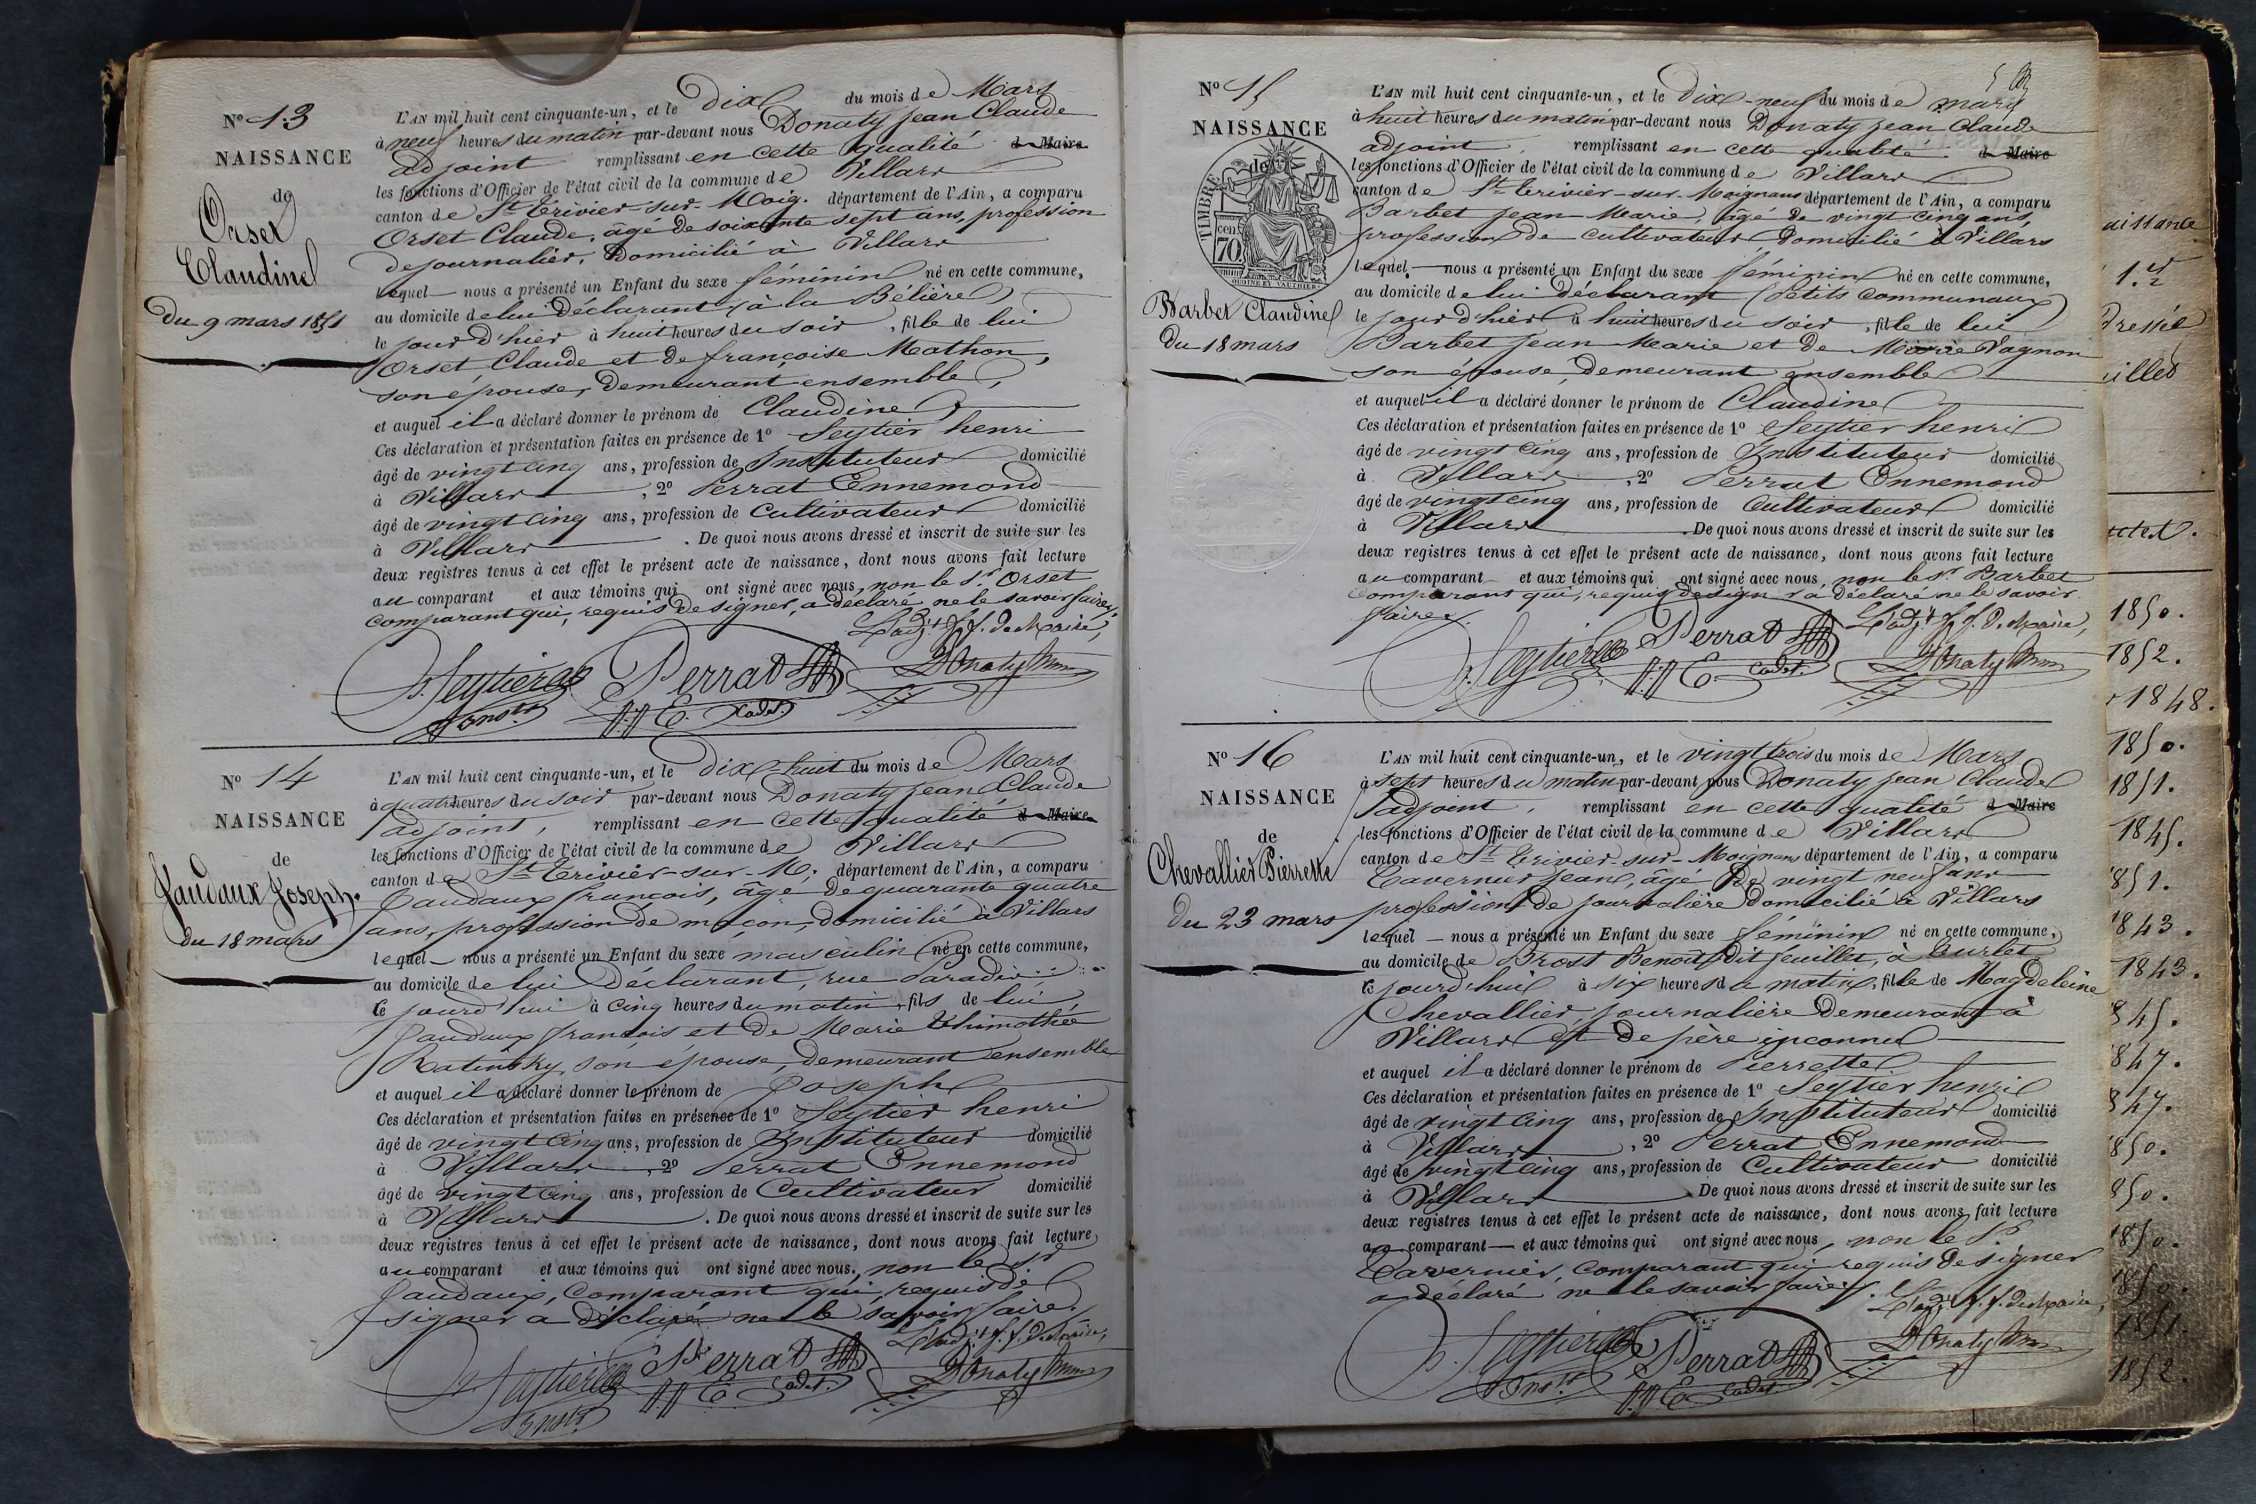 N° 13
NAISSANCE
de
Orset
Claudine
Du 9 mars 1851
L'AN mil huit cent cinquante-un, et le Dix du mois de Mars
à neuf heures du matin par-devant nous Donaty Jean Claude
adjoint remplissant en cette qualité d Maire
les fonctions d'Officier de l'état civil de la commune de Villars
canton de St Trivier-sur-Moig. département de l'Ain, a comparu
Orset Claude, âgé de soixante sept ans, profession
de journalier, Domicilié à Villars
lequel nous a présenté un Enfant du sexe féminin né en cette commune,
au domicile de lui Déclarant (à la Bélière)
le jour d'hier à huit heures du soir, fille de lui
Orset Claude et de françoise Mathon,
son épouse, demeurant ensemble,
et auquel il a déclaré donner le prénom de Claudine
Ces déclaration et présentation faites en présence de 1° Seytier henri
âgé de vingt cinq ans, profession de Instituteur domicilié
à Villars, 2° Perrat Ennemond
âgé de vingt cinq ans, profession de Cultivateur domicilié
à Villars. De quoi nous avons dressé et inscrit de suite sur les
deux registres tenus à cet effet le présent acte de naissance, dont nous avons fait lecture
au comparant et aux témoins qui ont signé avec nous, non le Sr Orset
comparant qui, requis de signer, a déclaré ne le savoir faire.
L'adjt f. f. de Maire,
h. Seytier Perrat Donaty
Instr E. Cadet.
N° 14
NAISSANCE
de
Jaudaux Joseph.
du 18 mars
L'AN mil huit cent cinquante-un, et le Dix-huit du mois de Mars
à quatre heures du soir par-devant nous Donaty Jean Claude
adjoint, remplissant en cette qualité d Maire
les fonctions d'Officier de l'état civil de la commune de Villars
canton de St Trivier-sur-M. département de l'Ain, a comparu
Jaudaux françois, âgé de quarante quatre
ans, profession de maçon, domicilié à Villars
lequel nous a présenté un Enfant du sexe masculin né en cette commune,
au domicile de lui Déclarant, rue Paradis
le jourd'hui à cinq heures du matin, fils de lui
Jaudaux françois et de Marie Thimothée
son épouse, demeurant ensemble
et auquel il a déclaré donner le prénom de Joseph
Ces déclaration et présentation faites en présence de 1° Seytier henri
âgé de vingt cinq ans, profession de Instituteur domicilié
à Villars, 2° Perrat Ennemond
âgé de vingt cinq ans, profession de Cultivateur domicilié
à Villars. De quoi nous avons dressé et inscrit de suite sur les
deux registres tenus à cet effet le présent acte de naissance, dont nous avons fait lecture
au comparant et aux témoins qui ont signé avec nous, non le Sr
Jaudaux, Comparant qui, requis de
signer a déclaré ne le savoir faire.
L'adjt f. f. de Maire,
h. Seytier Perrat Donaty
Instr E. Cadet.
N° 15
NAISSANCE
de
TIMBRE
70 cen
OUDINÉ ET VAUTHIER
Barbet Claudine
Du 18 mars
L'AN mil huit cent cinquante-un, et le Dix-neuf du mois de mars
à huit heures du matin par-devant nous Donaty Jean Claude
adjoint, remplissant en cette qualité d Maire
les fonctions d'Officier de l'état civil de la commune de Villars
canton de St Trivier-sur-Moignans département de l'Ain, a comparu
Barbet Jean Marie, âgé de vingt cinq ans,
profession de cultivateur Domicilié à Villars
lequel nous a présenté un Enfant du sexe féminin né en cette commune,
au domicile de lui Déclarant (Petits Communaux)
le jour d'hier à huit heures du soir, fille de lui
Barbet Jean Marie et de Marie Vagnon
son épouse, demeurant ensemble
et auquel il a déclaré donner le prénom de Claudine
Ces déclaration et présentation faites en présence de 1° Seytier henri
âgé de vingt cinq ans, profession de Instituteur domicilié
à Villars, 2° Perrat Ennemond
âgé de vingt cinq ans, profession de Cultivateur domicilié
à Villars. De quoi nous avons dressé et inscrit de suite sur les
deux registres tenus à cet effet le présent acte de naissance, dont nous avons fait lecture
au comparant et aux témoins qui ont signé avec nous, non le Sr Barbet
Comparant qui, requis de signer a déclaré ne le savoir
faire.
L'adjt f. f. de Maire,
h. Seytier Perrat Donaty
E. Cadet.
N° 16
NAISSANCE
de
Chevallier Pierrette
du 23 mars
L'AN mil huit cent cinquante-un, et le vingt trois du mois de Mars
à sept heures du matin par-devant nous Donaty Jean Claude
adjoint, remplissant en cette qualité d Maire
les fonctions d'Officier de l'état civil de la commune de Villars
canton de St Trivier-sur-Moignans département de l'Ain, a comparu
Tavernier Jean, âgé de vingt neuf ans
profession de journalière domicilié à Villars
lequel nous a présenté un Enfant du sexe féminin né en cette commune,
au domicile de Brost Benoit dit feuillet, à
le jourd'hui à six heures du matin, fille de Magdeleine
Chevallier, journalière demeurant à
Villars et de père inconnu
et auquel il a déclaré donner le prénom de Pierrette
Ces déclaration et présentation faites en présence de 1° Seytier henri
âgé de vingt cinq ans, profession de Instituteur domicilié
à Villars, 2° Perrat Ennemond
âgé de vingt cinq ans, profession de Cultivateur domicilié
à Villars. De quoi nous avons dressé et inscrit de suite sur les
deux registres tenus à cet effet le présent acte de naissance, dont nous avons fait lecture
au comparant et aux témoins qui ont signé avec nous, non le Sr
Tavernier, Comparant qui requis de signer
a déclaré ne le savoir faire.
L'adjt f. f. de Maire,
h. Seytier Perrat Donaty
Instr E. Cadet.
aissance
1.er
dressée
1850.
1852.
1848.
1850.
1851.
1845.
851.
843.
1843.
845.
847.
847.
850.
850.
1850.
1850.
1851.
1852.